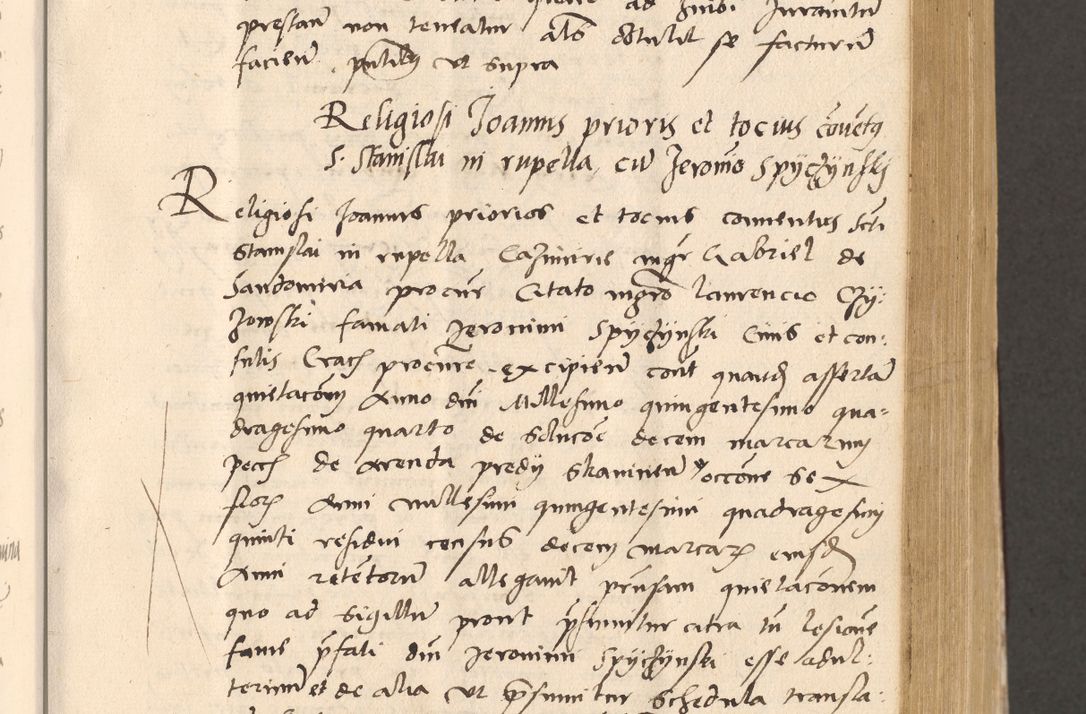 prestan non teneatur als obtulit se facturum
facien putibus ut supra
Religiosi Joannis prioris et tocius conventus
S. Stanislai in rupella, cum Jeronimo Spÿczÿnskÿ
Religiosi Joannis prioris et tocius conventus Scti
Stanislai in rupella Casimirie mgr Gabriel de
Sandomiria procur Citato mgro Laurencio Czÿ:
zowski famati Jeronimi Spÿczÿnski Civis et con:
sulis Crac procure excipien cont quand assertam
quietacom Anno dni Millesimo quingentesimo qua=
dragesimo quarto de solucoe decem marcarum
pecc de arenda predÿ Skaminen occone Sex
flor Anni millesimi quingentesimi quadragesimi
quinti residui census decem marcar eiusd
Anni retentorum allegavit prnsam quietaconem
quo ad sigillum prout psumitur citra tn lesione
fame pfati dni Jeronimi Spÿczÿnski esse adul:
terinum et de alia ut psumitur Schedula transla: